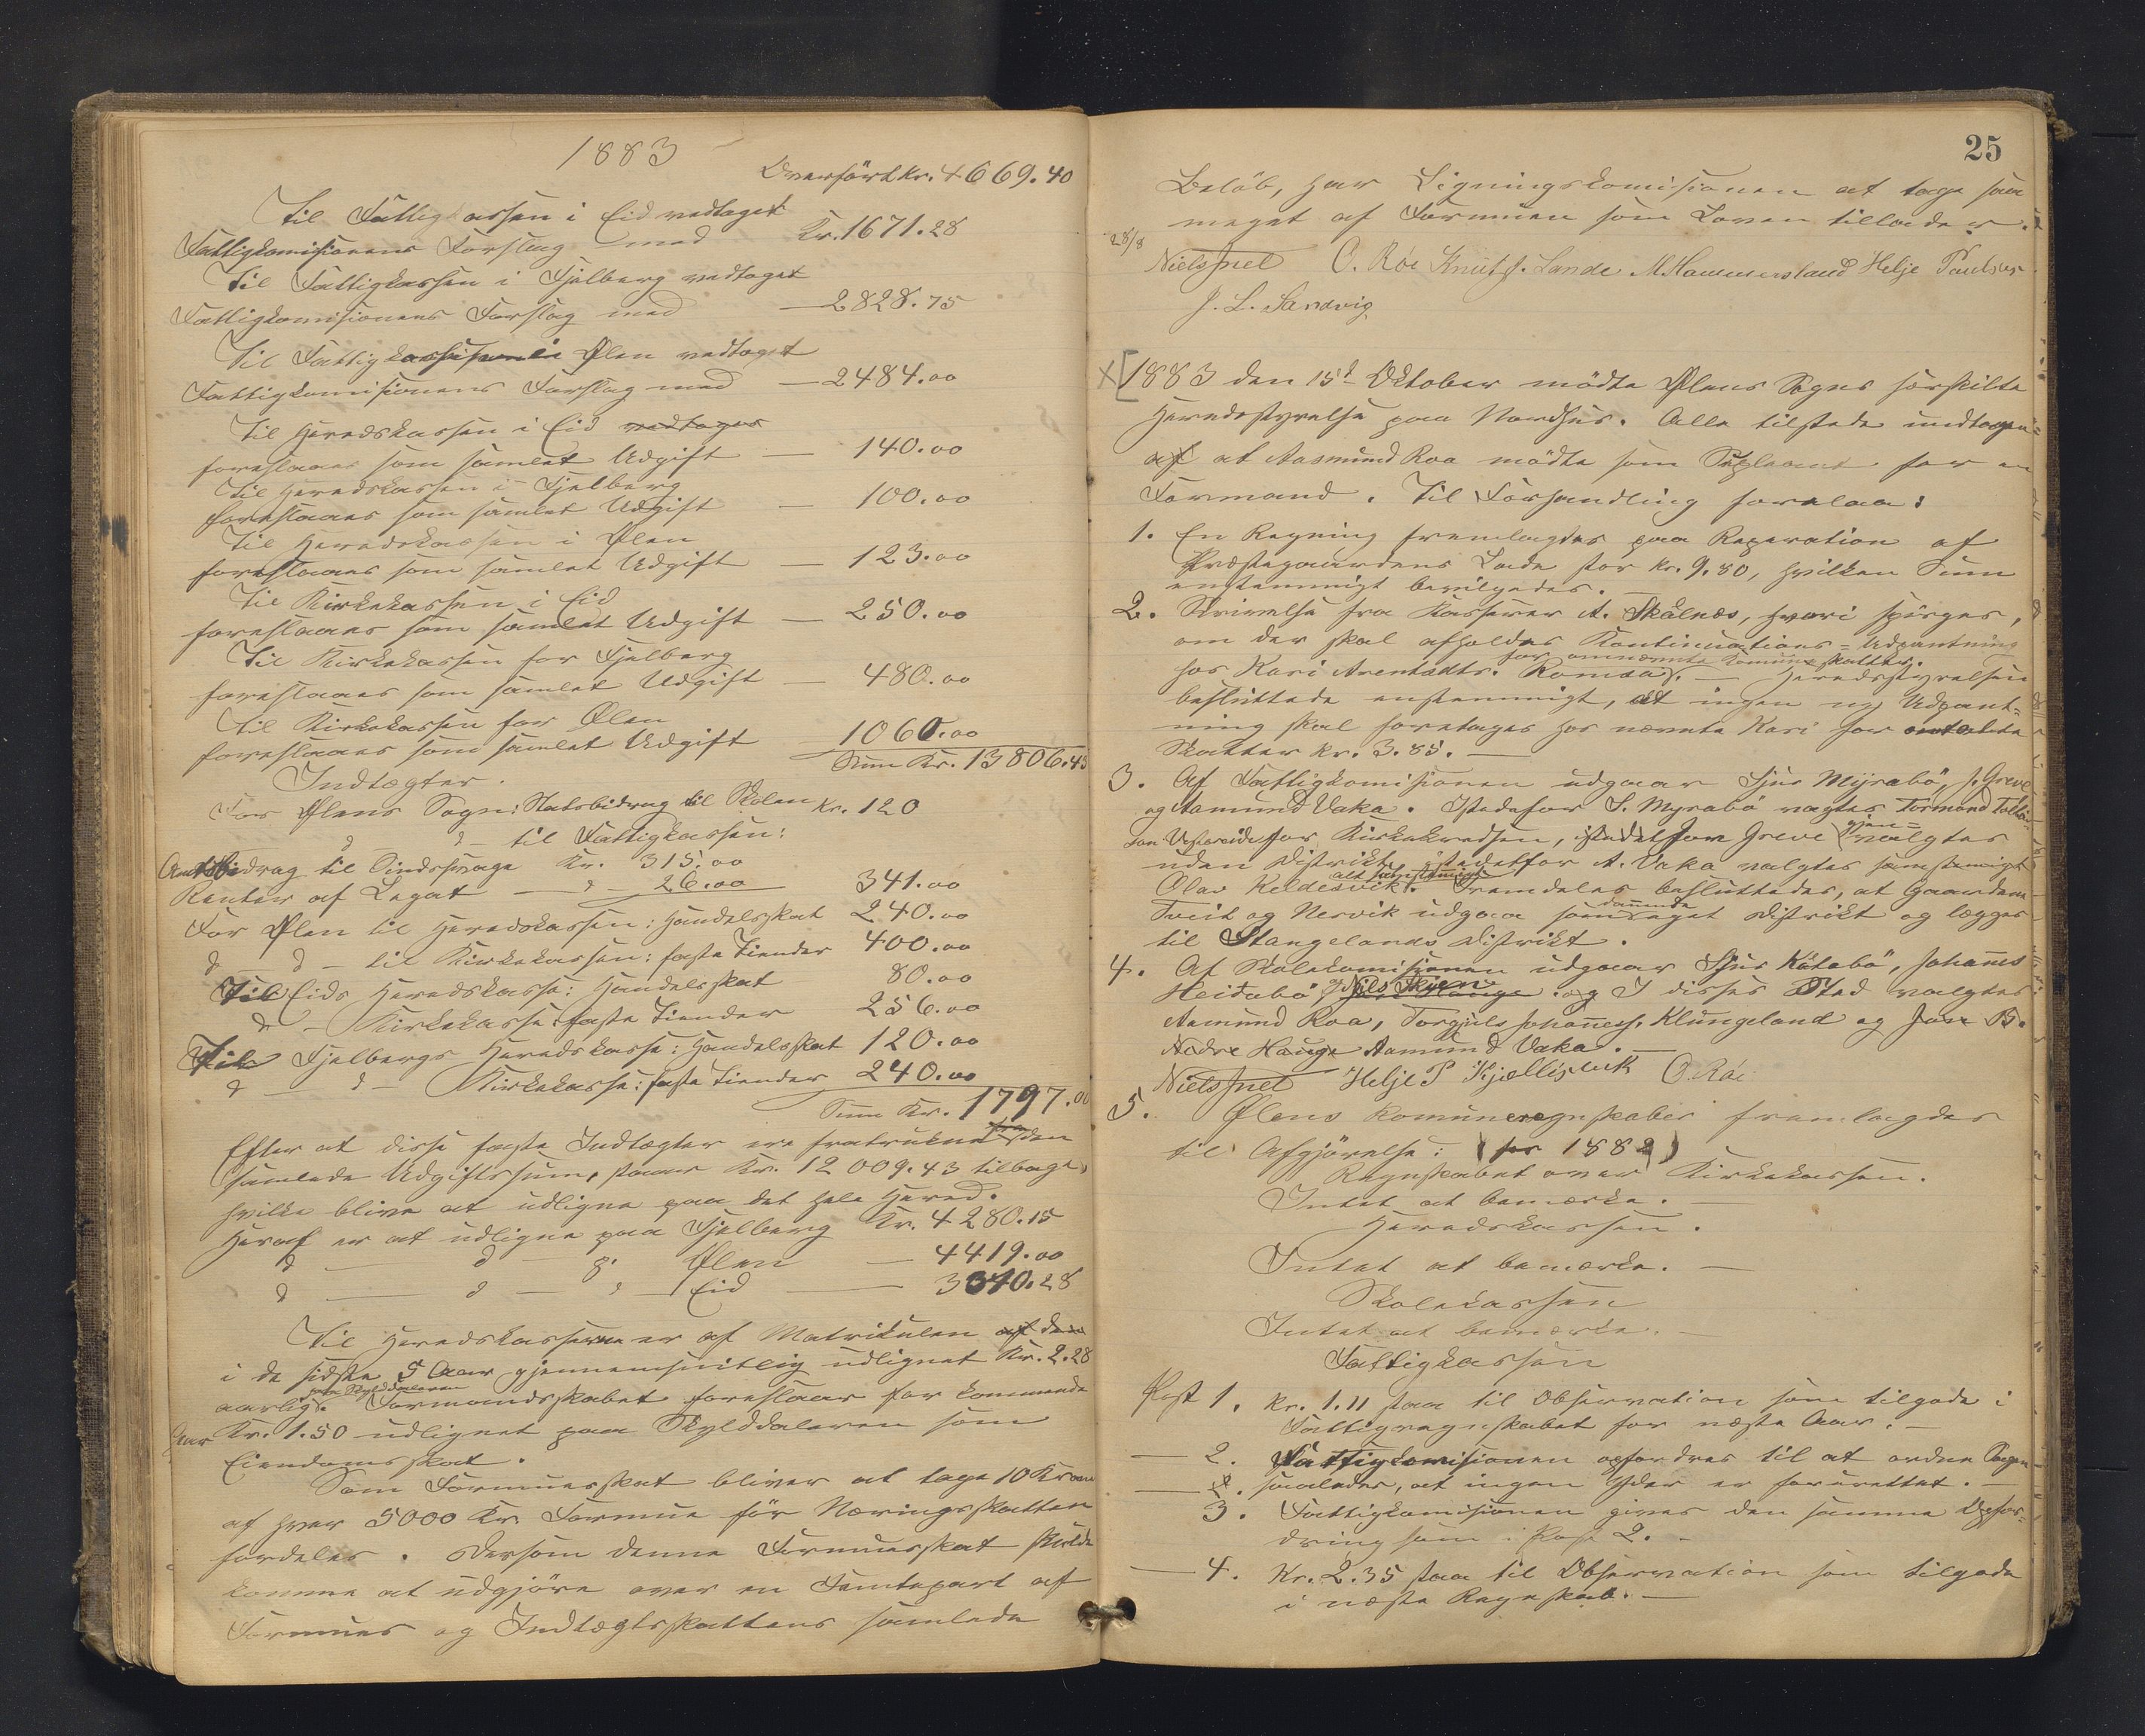 1883
Overført kr. 4669.40
Til Fattigkassen i Eid vedtaget
Fattigkomisionens Forslag med Kr. 1671.28
Til Fattigkassen i Fjelberg vedtaget
Fattigkomisionens Forslag med — 2828.75
Til Fattigkassen i Ølen vedtaget
Fattigkomisionens Forslag med — 2484.00
Til Heredskassen i Eid vedtages
foreslaaes som samlet Udgift — 140.00
Til Heredskassen i Fjelberg
foreslaaes som samlet Udgift — 100.00
Til Heredskassen i Ølen
foreslaaes som samlet Udgift — 123.00
Til Kirkekassen i Eid
foreslaaes som samlet Udgift — 250.00
Til Kirkekassen for Fjelberg
foreslaaes som samlet Udgift — 480.00
Til Kirkekassen for Ølen
foreslaaes som samlet Udgift 1060.00
Sum Kr. 13806.43
Indtægter.
For Ølens Sogn: Statsbidrag til Skolen Kr. 120
d — d — til Fattigkassen:
Amtsbidrag til Sindssvage Kr. 315.00
Renter af Legat — d — 26.00 341.00
For Ølen til Heredskassen: Handelsskat 240.00
d — d — til Kirkekassen: faste Tiender 400.00
Til Eids Heredskasse: Handelsskat 80.00
d — Kirkekasse: faste Tiender 256.00
Til Fjelbergs Heredskasse: Handelsskat 120.00
d — d — Kirkekasse: faste Tiender 240.00
Sum Kr. 1797.00
Efter at disse faste Indtægter ere fratrukne fra den
samlede Udgiftssum, staar Kr. 12009.43 tilbage,
hvilke blive at udligne paa det hele Hered.
Heraf er at udligne paa Fjelberg Kr. 4280.15
d — d — g. Ølen — 4419.00
d — d — d — Eid — 3310.28
Til Heredskasserne er af Matrikulen af den
i de sidste 5 Aar gjennemsnitlig udlignet Kr. 2.28
aarlig. paa Skylddaleren Formandskabet foreslaar for kommende
Aar Kr. 1.50 udlignet paa Skylddaleren som
Eiendomsskat.
Som Formuesskat bliver at tage 10 Kroner
af hver 5000 Kr. Formue før Næringsskatten
fordeles. Dersom denne Formuesskat skulde
komme at udgjøre over en Femtepart af
Formues og Indtægtsskattens samlede
25
Beløb, har Ligningskomisionen at tage saa
meget af Formuen som Loven tillader.
28/8
Niels Juel O. Röe Knut J. Lande M. Hammersland Helje Paulsen
J. L. Sandvig
X [1883 den 15d Oktober mødte Ølens Sogns særskilte
Heredsstyrelse paa Nordhus. Alle tilstede undtagen=
af at Aasmund Roa mødte som Supleant for en
Formand. Til Forhandling forelaa:
1. En Regning fremlagdes paa Reparation af
Præstegaardens Lade stor kr. 9.80, hvilken Sum
enstemmigt bevilgedes.
2. Skrivelse fra Kasserer A. Skålnes, hvori spørges,
om der skal afholdes Kontinuations=Udpantning
hos Kari Arentsdtr. Romsa for omnævnte Komuneskatter. — Heredsstyrelsen
besluttede enstemmigt, at ingen ny Udpant=
ning skal foretages hos nævnte Kari for omtalte
Skatter kr. 3.85. —
3. Af Fattigkomisionen udgaar Sjur Myrabø, J. Greve
og Aamund Vaka. Istedefor S. Myrabø valgtes Tormand
for Kirkekredsen, istedetfor Greve gjen=valgtes
uden Distrikt, istedetfor A. Vaka valgtes
Olav Keldesvik. alt Fremdeles besluttedes, at Gaardene
Tveit og Nervik udgaa som eget Distrikt og lægges
til Stangelands Distrikt.
4. Af Skolekomisionen udgaar Sjur Kåtabø, Johannes
Heidabø og Nils Skjen. I disses Sted valgtes
Aamund Roa, Torgjuls Johannes. Klungeland og Jon B.
Nedre Hauge Aamund Vaka. —
Niels Juel Helje P Kjællesvik O. Röe
5. Ølens Komuneregnskaber fremlagdes
til Afgjørelse: (for 1882)
Regnskabet over Kirkekassen.
Intet at bemærke.
Heredskassen.
Intet at bemærke. —
Skolekassen
Intet at bemærke. —
Fattigkassen
Post 1. kr. 1.11 staa til Observation som tilgode i
Fattigregnskabet for næste Aar. —
— 2. Fattigkomisionen opfordres til at ordne Sagen
saaledes, at ingen Yder er forurettet. —
3. Fattigkomisionen gives den samme Opfor=
dring som i Post 2. —
— 4. Kr. 2.35 staa til Observation som tilgode
i næste Regnskab. —